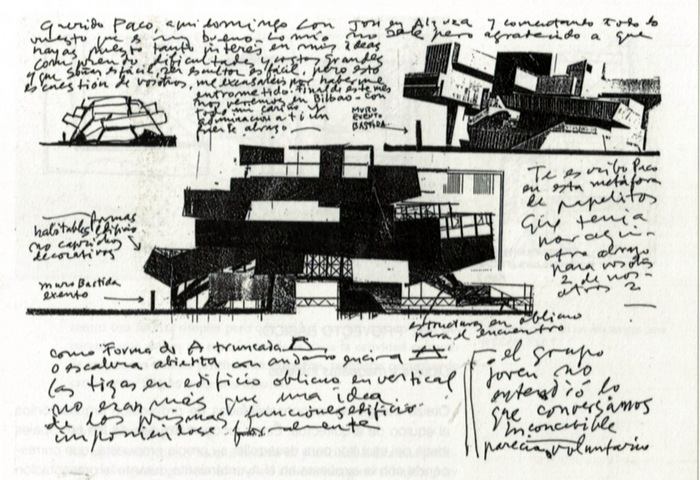 Querido Paco, aqui domingo con Jon en Alzuza y comentando todo lo
vuestro que es muy bueno. Lo mio no pero agradecido a que
hayas puesto tanto interes en mis ideas
comprendo dificultades y costos grandes
y que soñar es facil, ser escultor es facil, pero esto
es cuestión de vosotros, me excusareis por haberme
entrometido. Final de este mes
nos veremos en Bilbao - con
todo mi cariño y
admiracion a ti un
fuerte abrazo
MURO
EXENTO
BASTIDA
Te escribo Paco
en esta metáfora
de papelitos
que tenia
por aqui -
otro abrazo
para vosotros
2 de nos-
otros 2
formas
habitables edificio
no caprichos
decorativos
muro Bastida
exento
estructura en oblicuo
para el encuentro
como Forma de A truncada
o escalera abierta con andamio encima
las tizas en edificio oblicuo en vertical
no eran más que una idea
de los prismas funciones edificio
imponiendose
el grupo
joven no
entendió lo
que conversamos
inconcebible
parecia voluntario